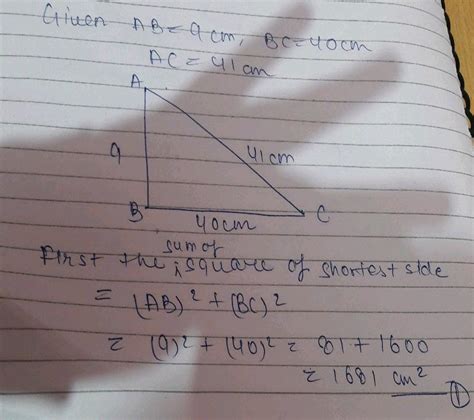 Given AB = 9cm, BC = 40cm
AC = 41cm
A
9
41cm
B
40cm
C
sum of
First the square of shortest side
= (AB)² + (BC)²
= (9)² + (40)² = 81 + 1600
= 1681 cm² ①